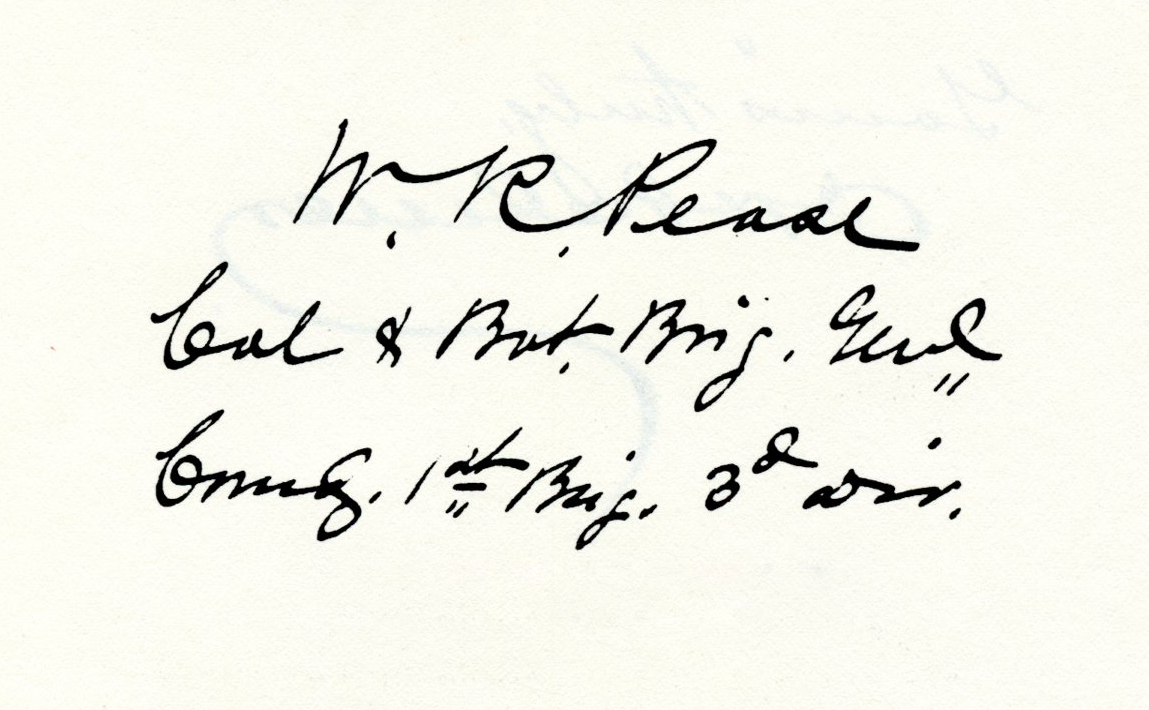 W. R. Pease
Col & Bvt. Brig. Genl
Comg. 1st Brig. 3d Div.